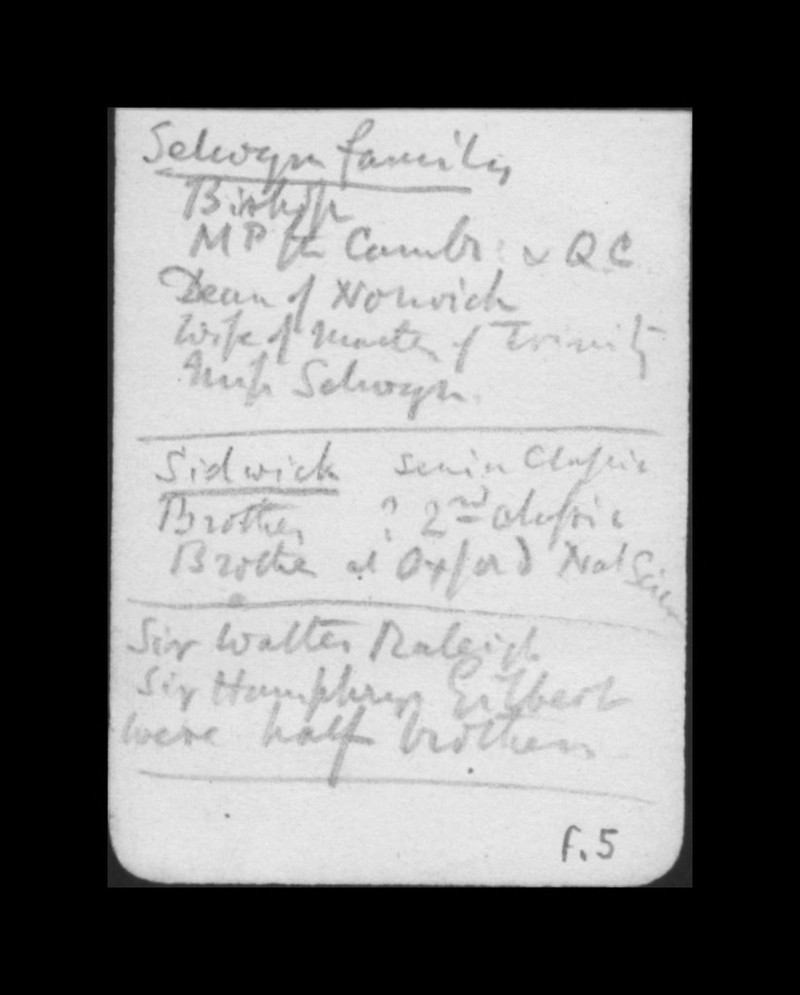 Selwyn family
Bishop
MP for Cambr: & QC
Dean of Norwich
Wife of Master of Trinity
Miss Selwyn.
Sidwick senior Classic
Brother ? 2nd classic
Brother at Oxford Nat Scien
Sir Walter Raleigh
Sir Humphrey Gilbert
were half brothers
F.5